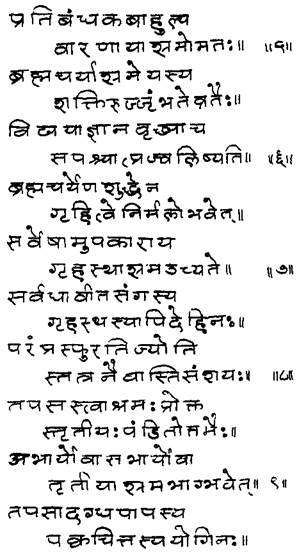 प्रतिबंधकबाहुल्य
वारणायाश्रमोमतः॥ ॥५॥
ब्रह्मचर्याश्रमेयस्य
शक्तिरुज्जृंभतेव्रतैः॥
विद्ययाज्ञानवृध्याच
सपश्चात्प्रज्वलिष्यति॥६॥
ब्रह्मचर्येणशुद्धेन
गृहित्वेनिर्मलोभवेत्॥
सर्वेषामुपकाराय
गृहस्थाश्रमउच्यते॥ ॥७॥
सर्वथावीतसंगस्य
गृहस्थस्यापिदेहिनः॥
परंप्रस्फुरतिज्योति
स्तत्रनैवास्तिसंशयः॥ ॥८॥
तपसस्त्वाश्रमःप्रोक्त
स्तृतीयःपंडितोत्तमैः॥
अभार्योवासभार्योवा
तृतीयाश्रमभाग्भवेत्॥९॥
तपसादग्धपापस्य
पक्वचित्तस्ययोगिनः॥